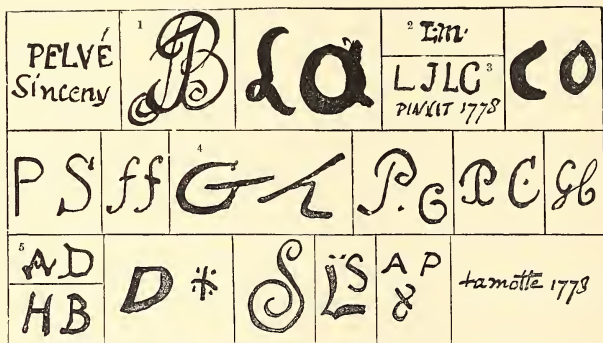 PELVÉ
Sinceny
1
JB
La
2
I.m.
LJLC 3
PINXIT 1778
CO
PS
ff
4
G
P. G
P. C.
Gb
5
AD
HB
D *
S
LS
AP
8
Lamotte 1778